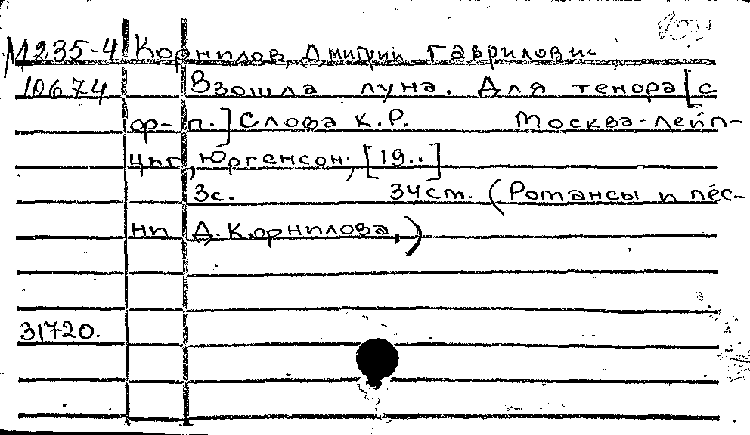 М235-4 Корнилов, Дмитрий Гаврилович
10674 Взошла луна. Для тенора [с
ф-п.] Слова К.Р. Москва-Лейп-
циг, Юргенсон, [19..]
3с. 34см. (Романсы и пес-
ни Д. Корнилова,)
31720.